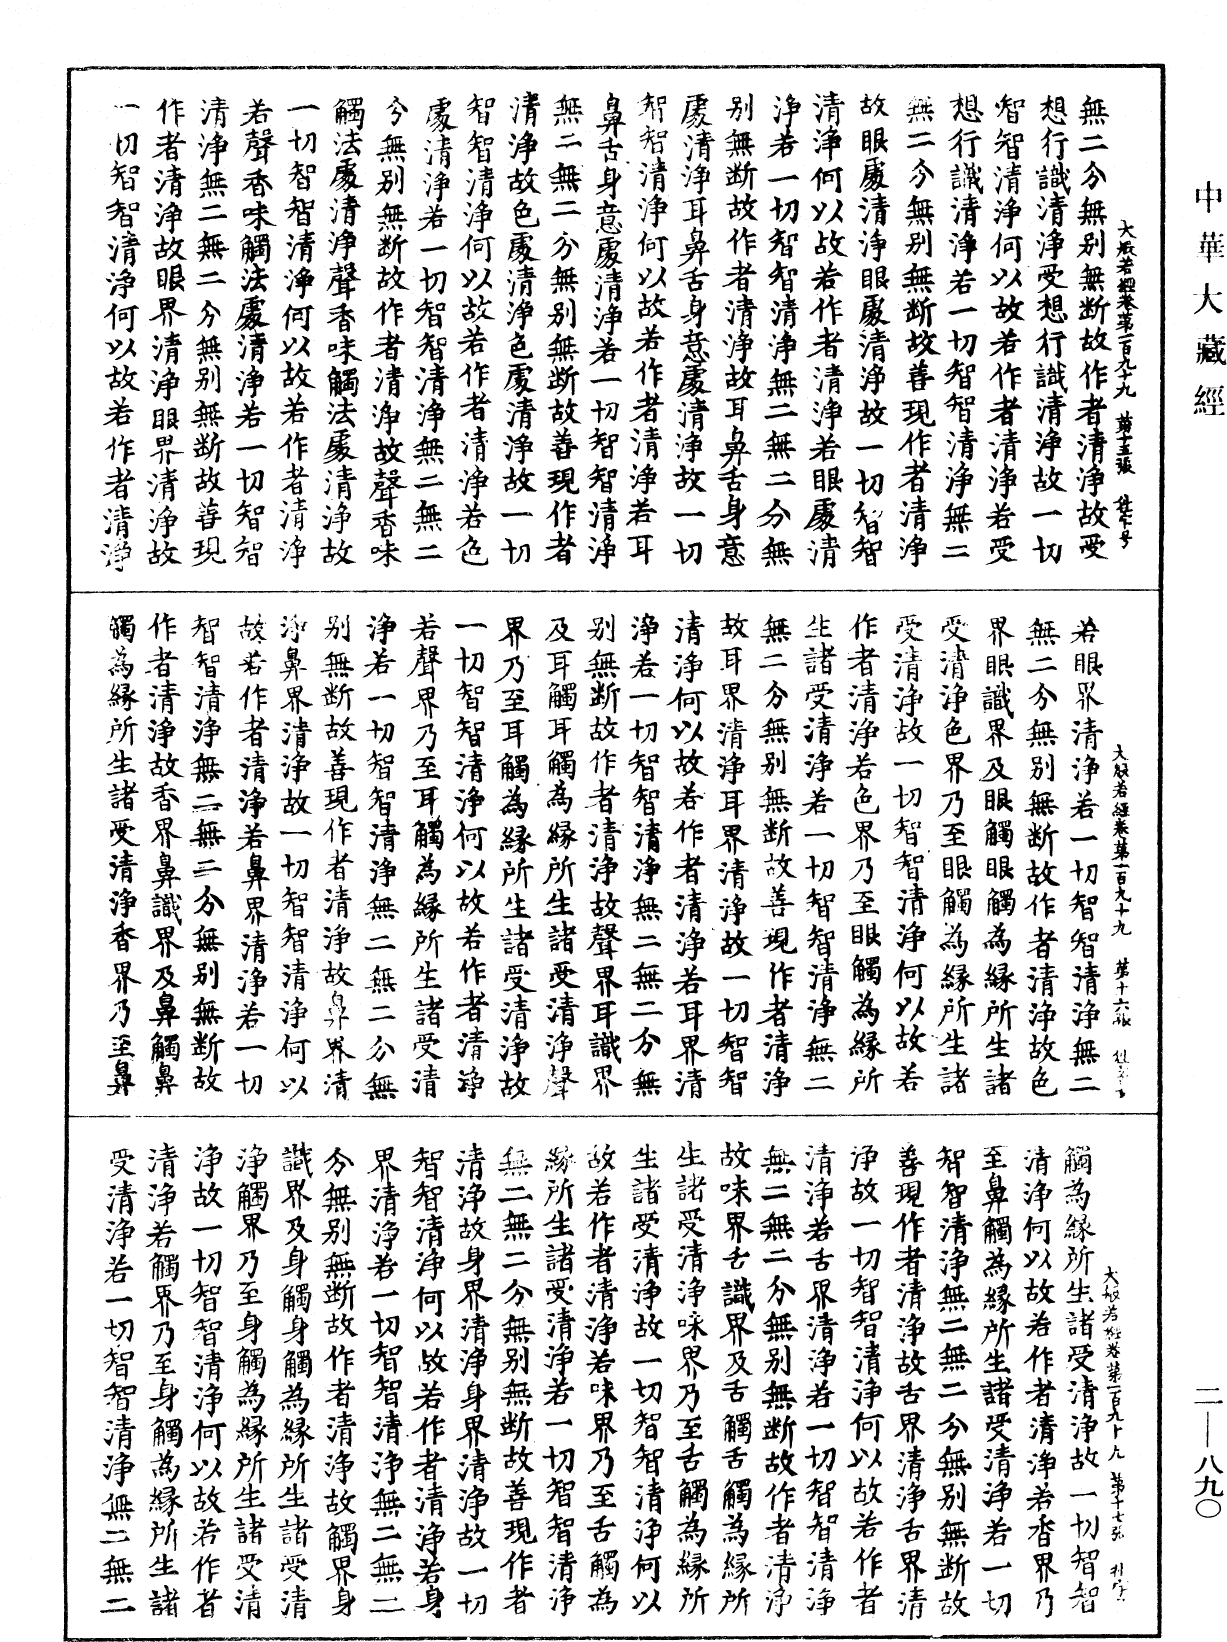 中華大藏經
無二分無別無斷故作者清淨故受
大般若經卷第一百九十九 第十五張
想行識清淨受想行識清淨故一切
智智清淨何以故若作者清淨若受
想行識清淨若一切智智清淨無二
無二分無別無斷故善現作者清淨
故眼處清淨眼處清淨故一切智智
清淨何以故若作者清淨若眼處清
淨若一切智智清淨無二無二分無
別無斷故作者清淨故耳鼻舌身意
處清淨耳鼻舌身意處清淨故一切
智智清淨何以故若作者清淨若耳
鼻舌身意處清淨若一切智智清淨
無二無二分無別無斷故善現作者
清淨故色處清淨色處清淨故一切
智智清淨何以故若作者清淨若色
處清淨若一切智智清淨無二無二
分無別無斷故作者清淨故聲香味
觸法處清淨聲香味觸法處清淨故
一切智智清淨何以故若作者清淨
若聲香味觸法處清淨若一切智智
清淨無二無二分無別無斷故善現
作者清淨故眼界清淨眼界清淨故
一切智智清淨何以故若作者清淨
大般若經卷第一百九十九 第十六張
若眼界清淨若一切智智清淨無二
無二分無別無斷故作者清淨故色
界眼識界及眼觸眼觸為緣所生諸
受清淨色界乃至眼觸為緣所生諸
受清淨故一切智智清淨何以故若
作者清淨若色界乃至眼觸為緣所
生諸受清淨若一切智智清淨無二
無二分無別無斷故善現作者清淨
故耳界清淨耳界清淨故一切智智
清淨何以故若作者清淨若耳界清
淨若一切智智清淨無二無二分無
別無斷故作者清淨故聲界耳識界
及耳觸耳觸為緣所生諸受清淨聲
界乃至耳觸為緣所生諸受清淨故
一切智智清淨何以故若作者清淨
若聲界乃至耳觸為緣所生諸受清
淨若一切智智清淨無二無二分無
別無斷故善現作者清淨故鼻界清
淨鼻界清淨故一切智智清淨何以
故若作者清淨若鼻界清淨若一切
智智清淨無二無二分無別無斷故
作者清淨故香界鼻識界及鼻觸鼻
觸為緣所生諸受清淨香界乃至鼻
大般若經卷第一百九十九 第十七張
觸為緣所生諸受清淨故一切智智
清淨何以故若作者清淨若香界乃
至鼻觸為緣所生諸受清淨若一切
智智清淨無二無二分無別無斷故
善現作者清淨故舌界清淨舌界清
淨故一切智智清淨何以故若作者
清淨若舌界清淨若一切智智清淨
無二無二分無別無斷故作者清淨
故味界舌識界及舌觸舌觸為緣所
生諸受清淨味界乃至舌觸為緣所
生諸受清淨故一切智智清淨何以
故若作者清淨若味界乃至舌觸為
緣所生諸受清淨若一切智智清淨
無二無二分無別無斷故善現作者
清淨故身界清淨身界清淨故一切
智智清淨何以故若作者清淨若身
界清淨若一切智智清淨無二無二
分無別無斷故作者清淨故觸界身
識界及身觸身觸為緣所生諸受清
淨觸界乃至身觸為緣所生諸受清
淨故一切智智清淨何以故若作者
清淨若觸界乃至身觸為緣所生諸
受清淨若一切智智清淨無二無二
二—八九〇